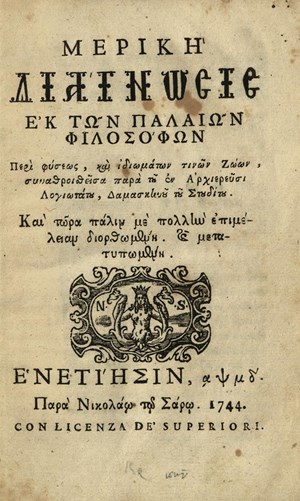 ΜΕΡΙΚΗ'
ΔΙΑ'ΓΝΩΣΙΣ
Ε'Κ ΤΩ͂Ν ΠΑΛΑΙΩ͂Ν
ΦΙΛΟΣΌΦΩΝ
Περὶ φύσεως, καὶ ἰδιωμάτων τινῶν Ζώων,
συναθροισθεῖσα παρὰ τοῦ ἐν Ἀρχιερεῦσι
Λογιωτάτου, Δαμασκηνοῦ τοῦ Στουδίτου.
Καὶ τώρα πάλιν μὲ πολλὴν ἐπιμέ-
λειαν διορθωμένη. καὶ μετα-
τυπωμένη.
N. S.
Ε'ΝΕΤΙ'ΗΣΙΝ, αψμδ'.
Παρὰ Νικολάῳ τῷ Σάρῳ. 1744.
CON LICENZA DE' SUPERIORI.